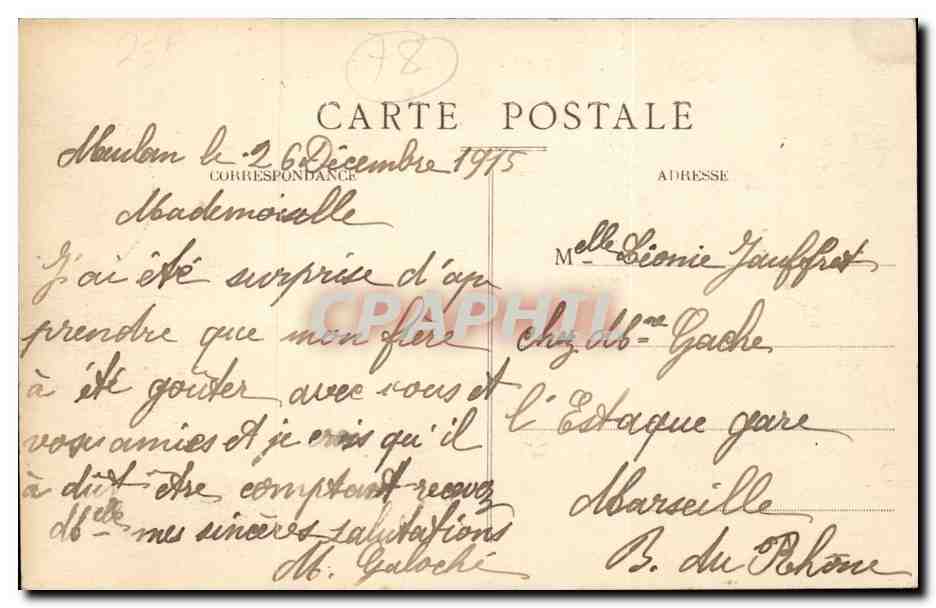 78
CARTE POSTALE
Meulan le 26 Décembre 1915
CORRESPONDANCE
Mademoiselle
J'ai été surprise d'ap
prendre que mon frère
à été goûter avec vous et
vos amies et je crois qu'il
à dût être comptant recevez
Melle mes sincères salutations
M. Galoché
ADRESSE
Melle Léonie Jauffret
chez Mme Gache
l'Estaque gare
Marseille
B. du Rhône
CPAPHIL